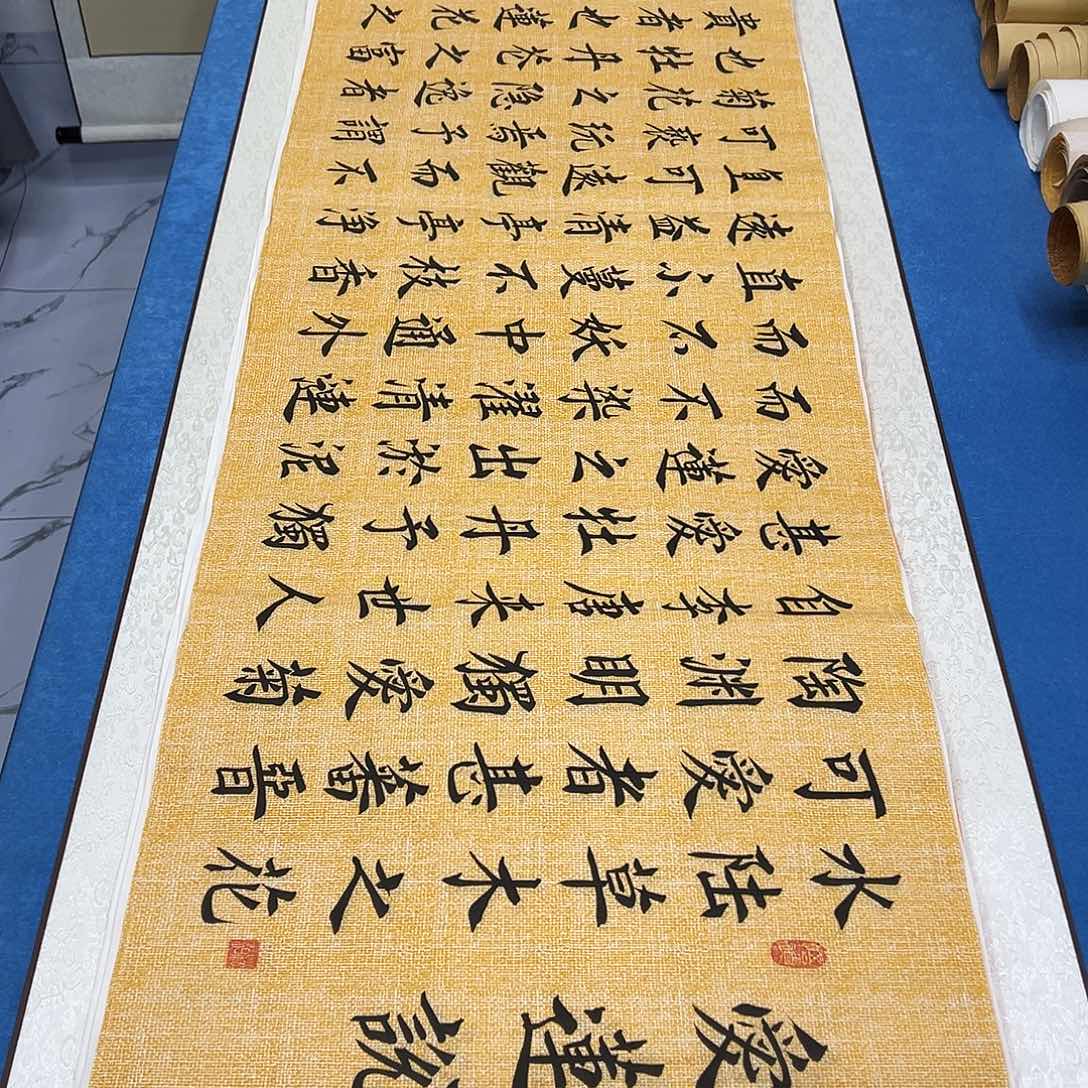 愛蓮說
水陸草木之花
可愛者甚蕃晉
陶淵明獨愛菊
自李唐來世人
甚愛牡丹予獨
愛蓮之出淤泥
而不染濯清漣
而不妖中通外
直不蔓不枝香
遠益清亭亭净
直可遠觀而不
可褻玩焉予謂
菊花之隐逸者
也牡丹花之富
貴者也蓮花之